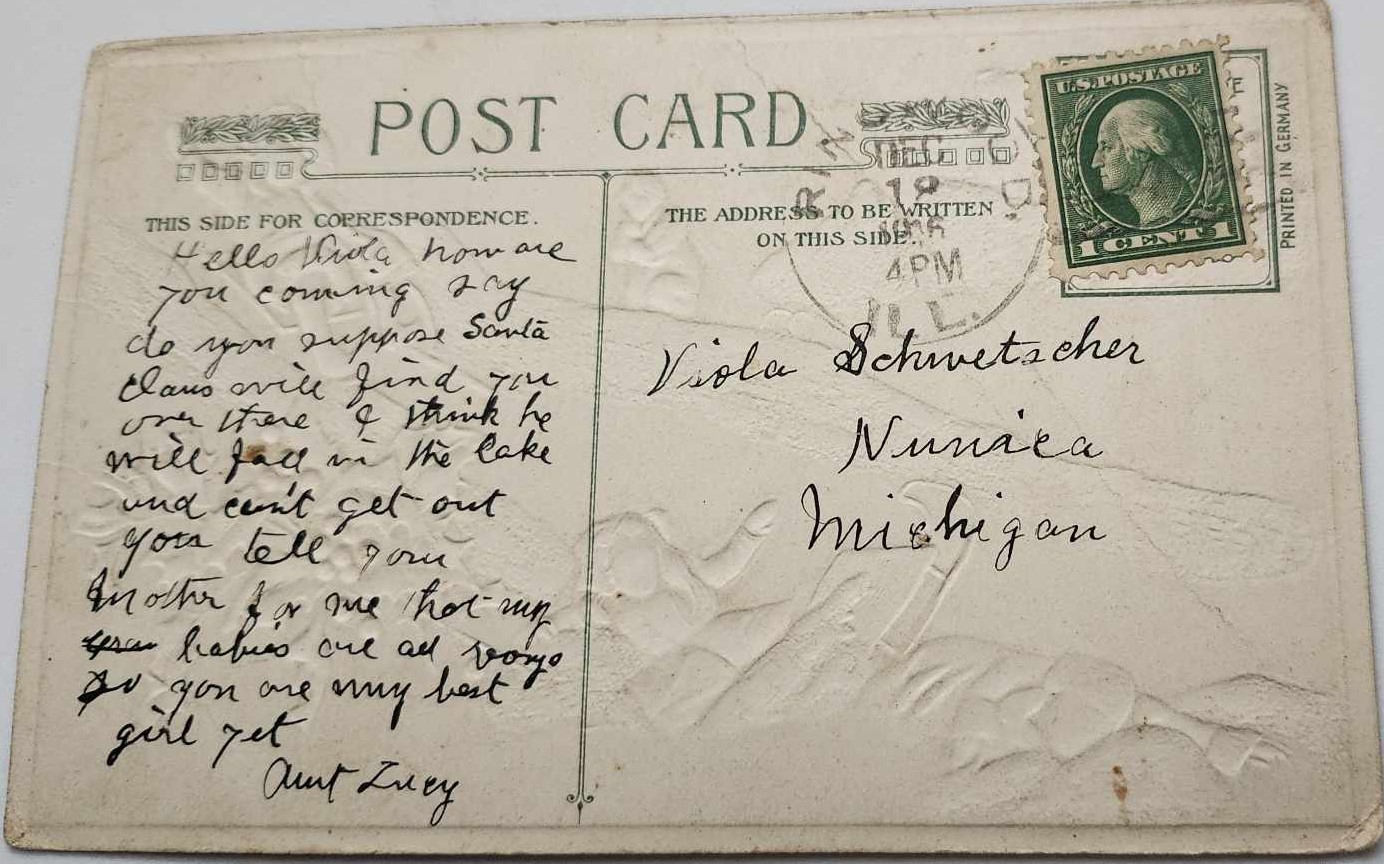 POST CARD
THIS SIDE FOR CORRESPONDENCE.
Hello Viola how are
you coming say
do you suppose Santa
Claus will find you
over there I think he
will fall in the lake
and can't get out
you tell your
mother for me that my
babies are all
so you are my best
girl yet
Aunt Lucy
THE ADDRESS TO BE WRITTEN
ON THIS SIDE.
DEC
4 PM
ILL.
U.S. POSTAGE
1 CENT 1
PRINTED IN GERMANY
Viola Schwetscher
Nunica
Michigan